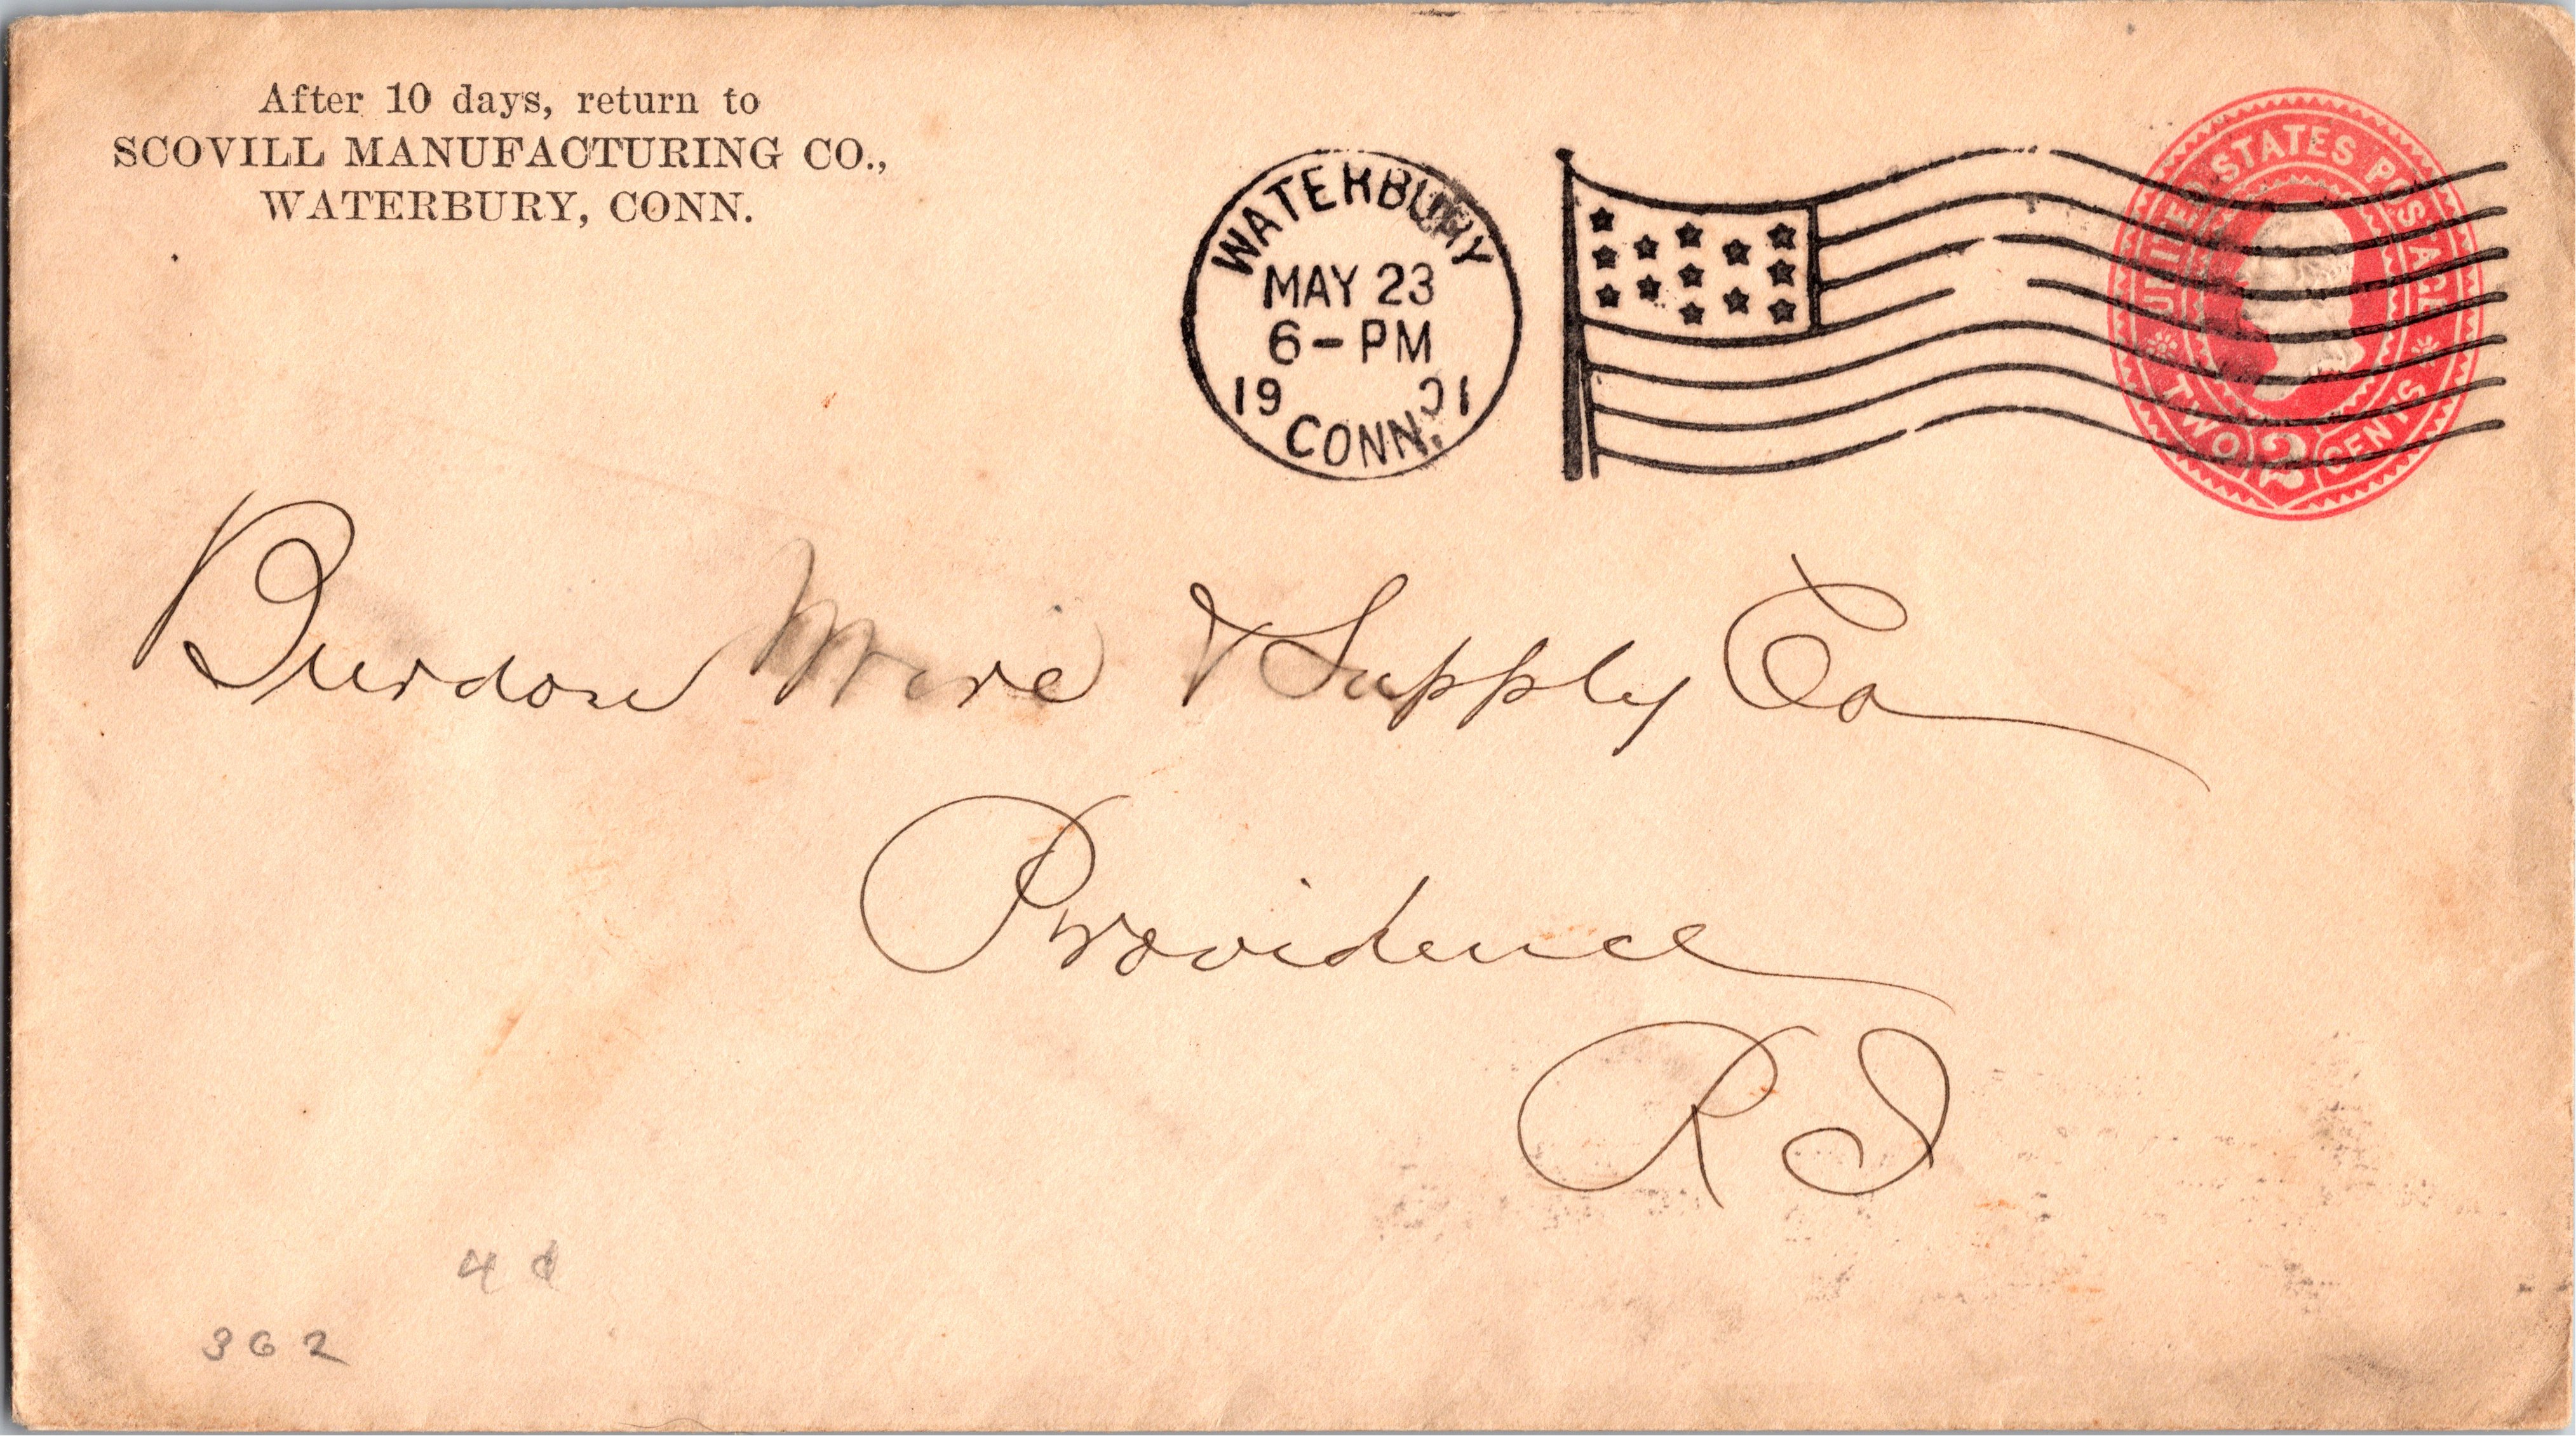 After 10 days, return to
SCOVILL MANUFACTURING CO.,
WATERBURY, CONN.
WATERBURY
MAY 23
6-PM
1901
CONN.
UNITED STATES POSTAGE
TWO 2 CENTS
Burdon Wire & Supply Co
Providence
R I
4 ¢
362